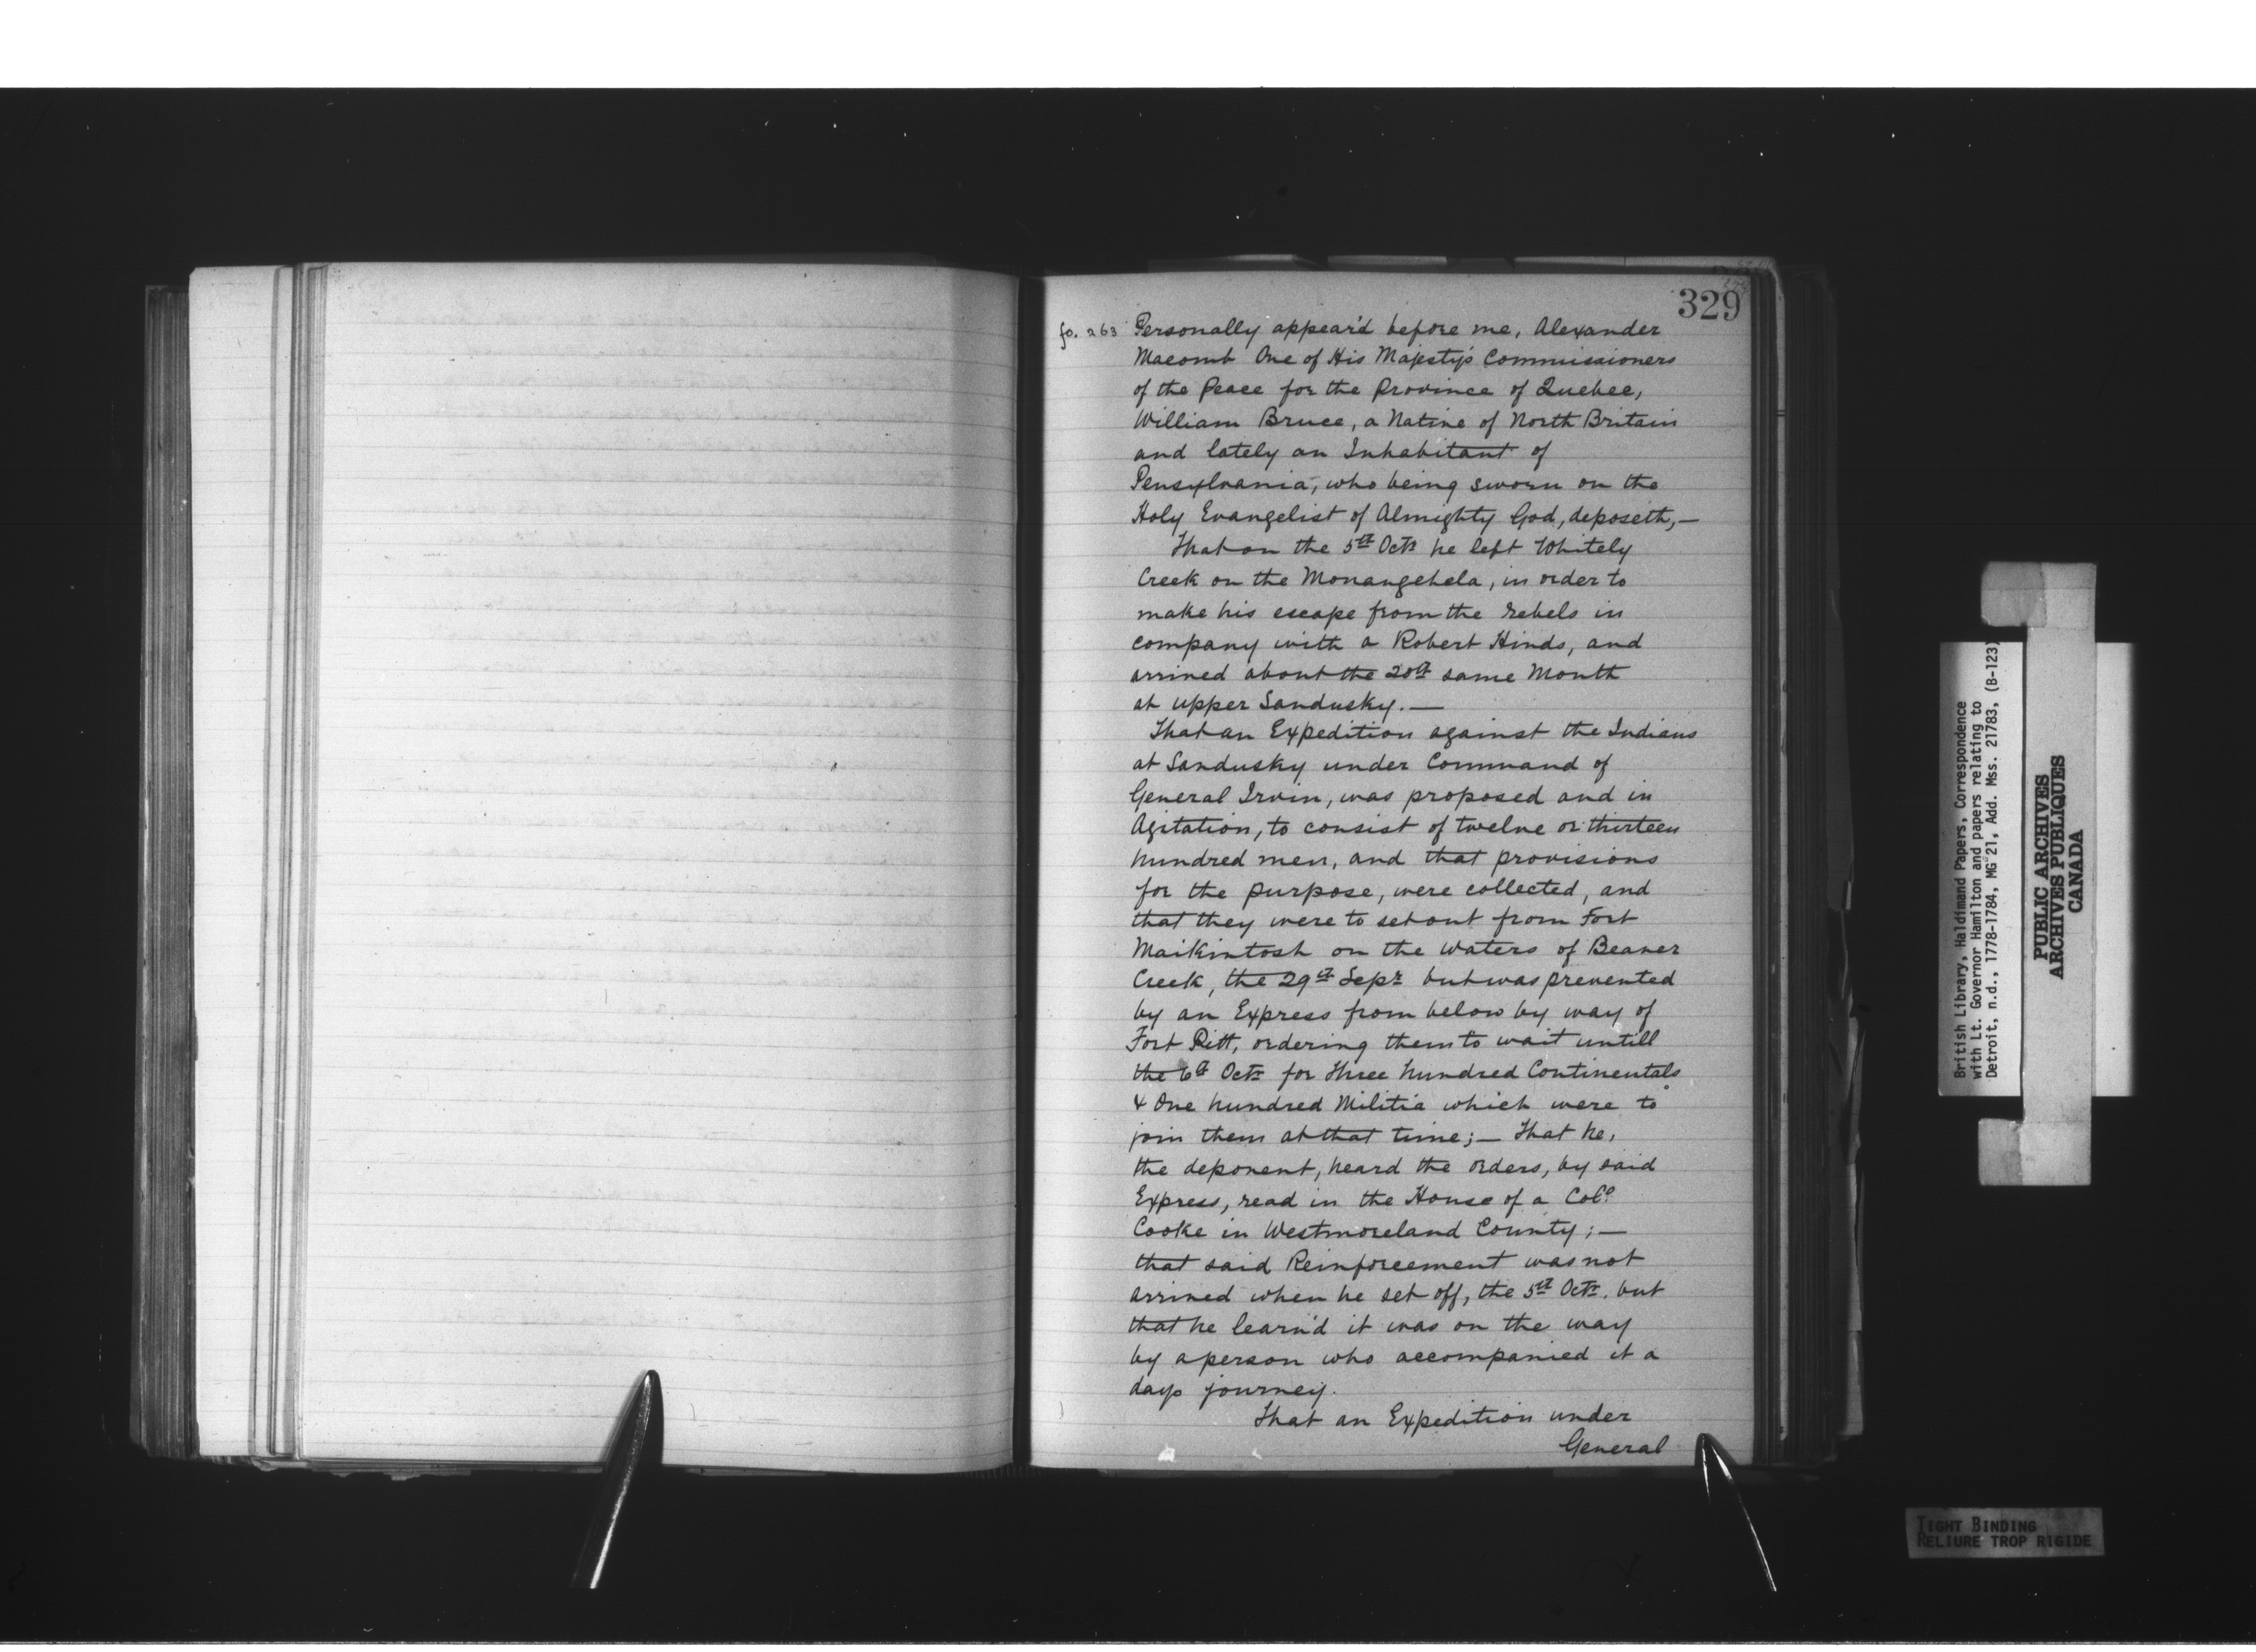 329
fo. 263 Personally appear'd before me, Alexander
Macomb One of His Majesty's Commissioners
of the Peace for the Province of Quebec,
William Bruce, a Native of North Britain
and lately an Inhabitant of
Pensylvania, who being sworn on the
Holy Evangelist of Almighty God, deposeth,—
That on the 5th Octr he left Whitely
Creek on the Monangehela, in order to
make his escape from the rebels in
company with a Robert Hinds, and
arrived about the 20th same Month
at upper Sandusky.—
That an Expedition against the Indians
at Sandusky under Command of
General Irvin, was proposed and in
Agitation, to consist of twelve or thirteen
hundred men, and that provisions
for the purpose, were collected, and
that they were to set out from Fort
Maikintosh on the waters of Beaver
Creek, the 29th Sepr but was prevented
by an Express from below by way of
Fort Pitt, ordering them to wait untill
the 6th Octr for three hundred Continentals
& One hundred Militia which were to
join them at that time;— That he,
the deponent, heard the orders, by said
Express, read in the House of a Colo
Cooke in Westmoreland County;—
that said Reinforcement was not
arrived when he set off, the 5th Octr. but
that he learn'd it was on the way
by a person who accompanied it a
days journey.
That an Expedition under
General
British Library, Haldimand Papers, Correspondence
with Lt. Governor Hamilton and papers relating to
Detroit, n.d., 1778-1784, MG 21, Add. Mss. 21783, (B-123)
PUBLIC ARCHIVES
ARCHIVES PUBLIQUES
CANADA
TIGHT BINDING
RELIURE TROP RIGIDE